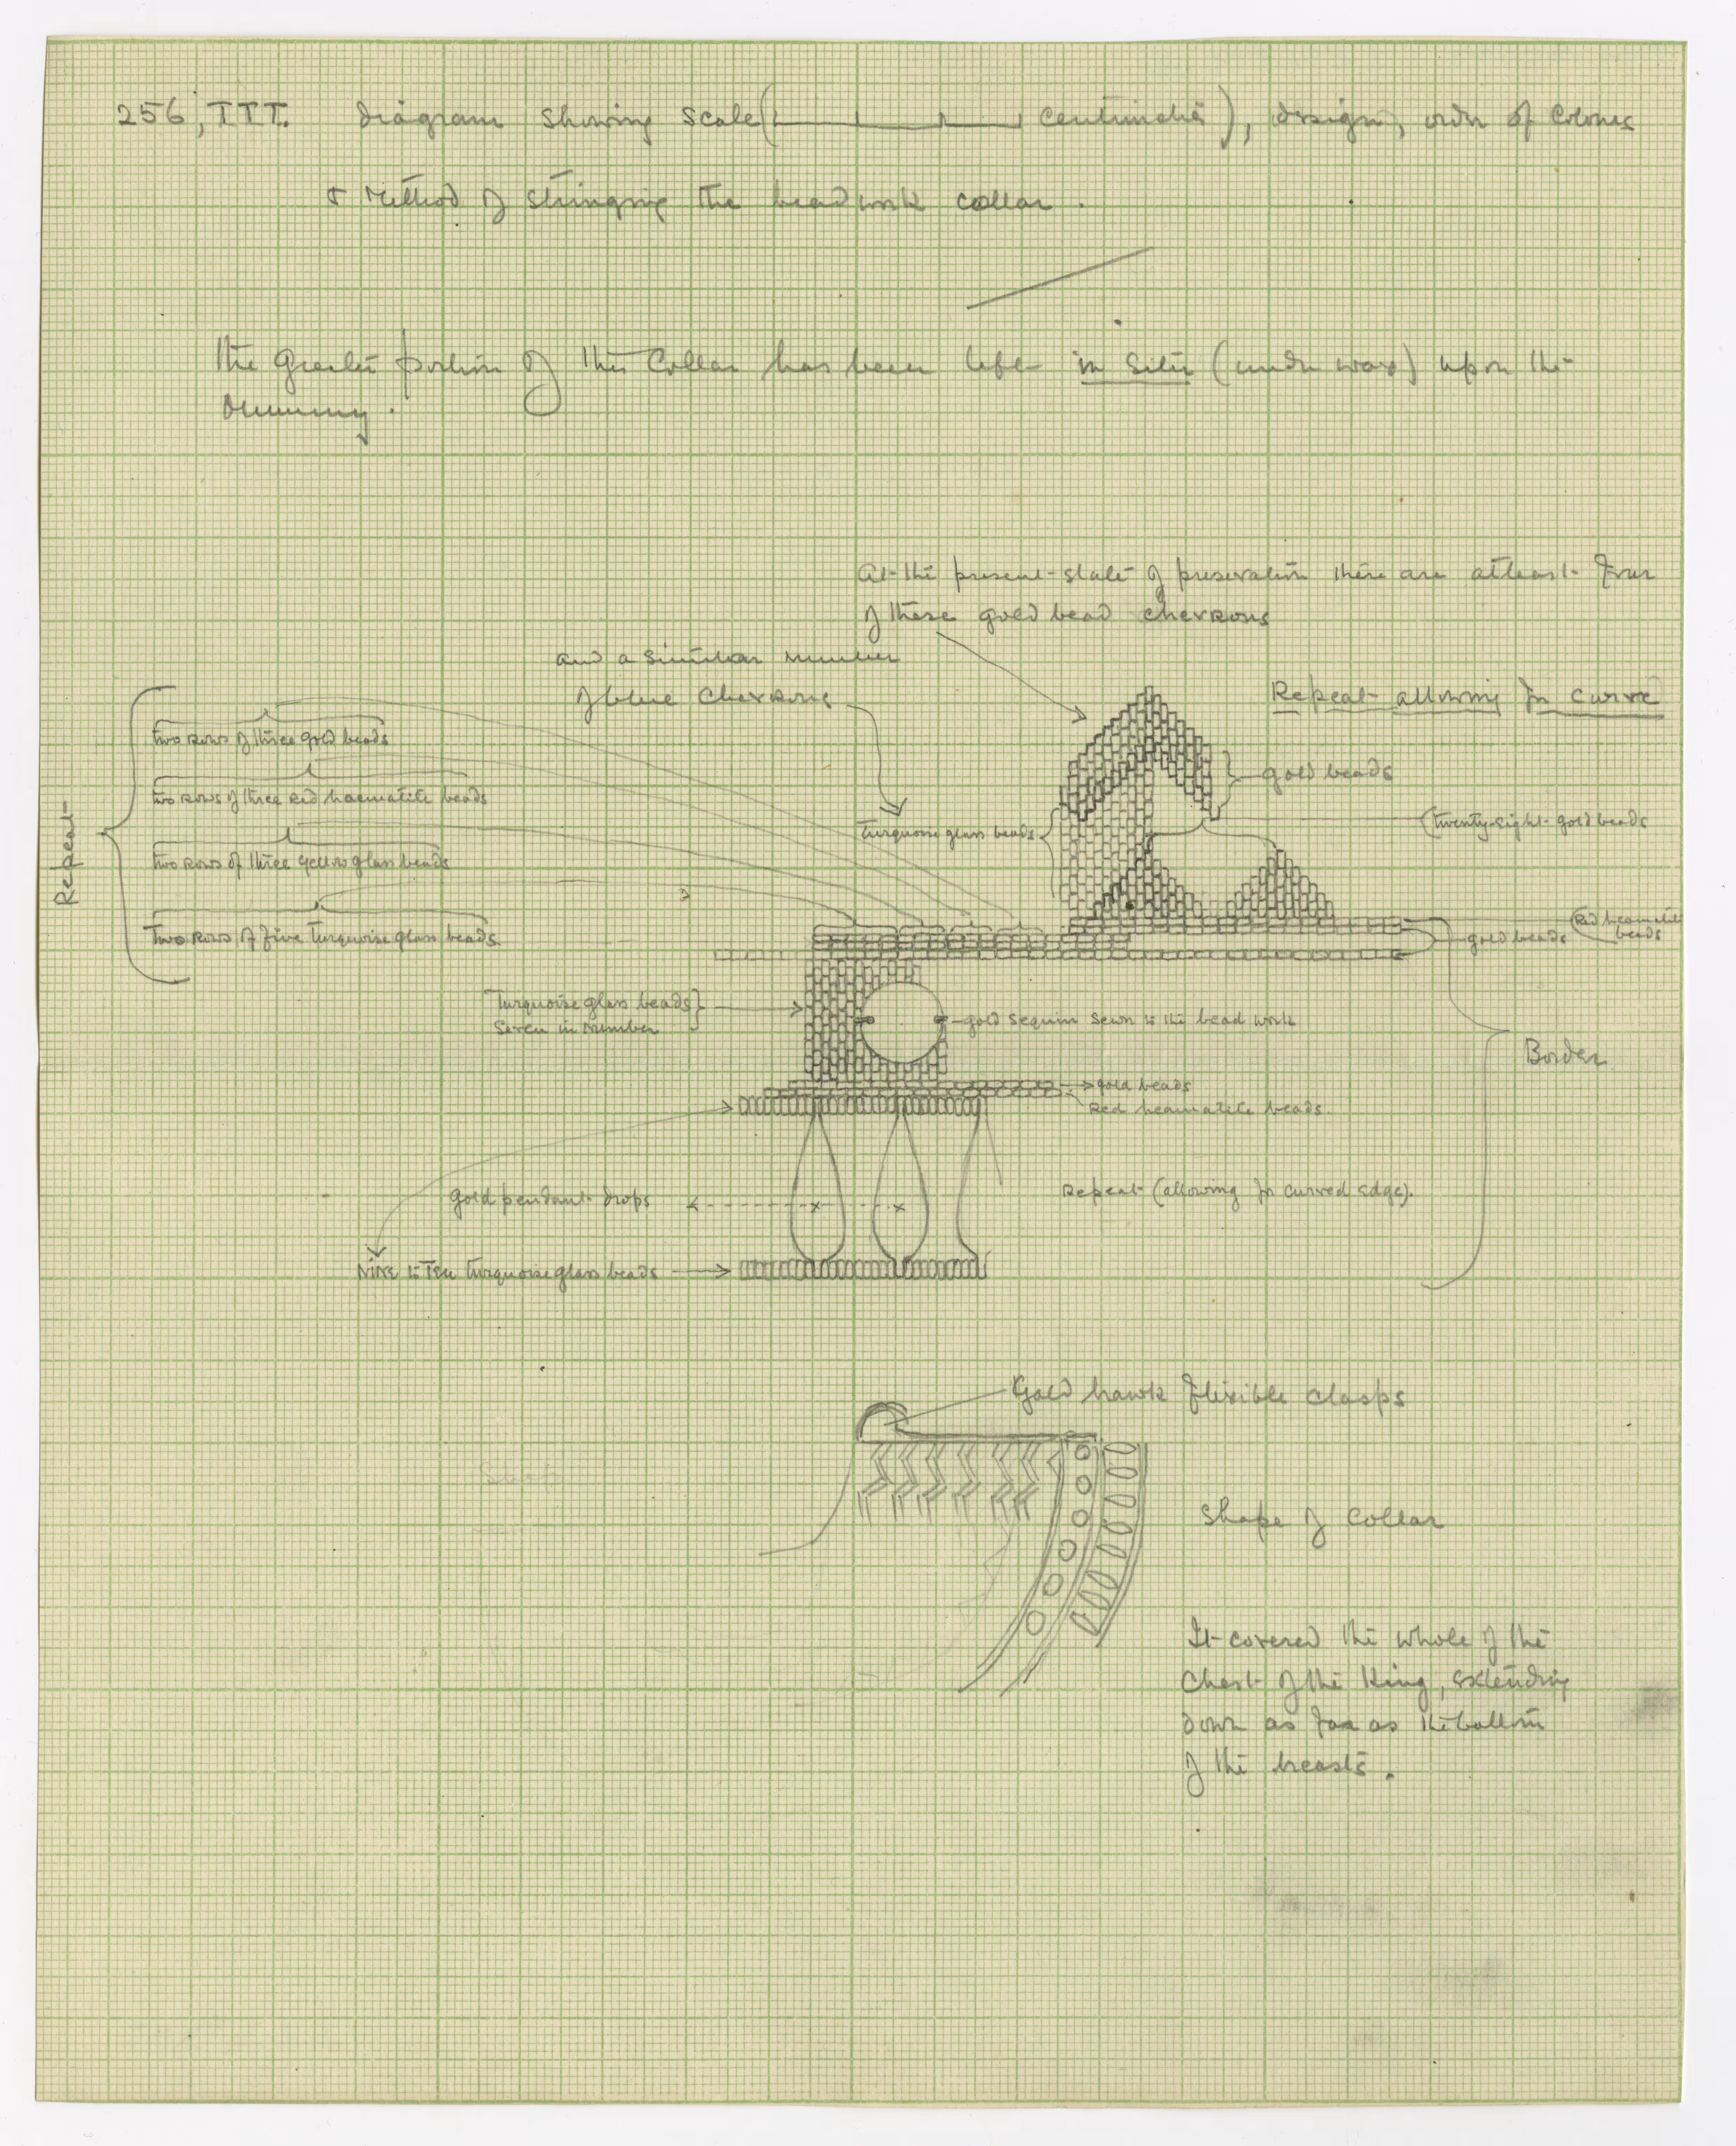 256, TTT. Diagram showing scale ( centimetres ), design, order of colours
& method of stringing the beadwork collar.
The greater portion of this collar has been left in situ (under wax) upon the
mummy.
At the present state of preservation there are at least four
of these gold bead chevrons
and a similar number
of blue chevrons
Repeat allowing for curve
Two rows of three gold beads
gold beads
Two rows of three red haematite beads
Repeat
Turquoise glass beads
twenty-eight gold beads
Two rows of three yellow glass beads
?
Two rows of five turquoise glass beads
gold beads
Red heamatite
beads
Turquoise glass beads
seven in number
gold sequin sewn to the bead work
Border
gold beads
Red heamatite beads.
gold pendant drops
Repeat (allowing for curved edge).
Nine to Ten turquoise glass beads
Gold hawk flexible clasps
Shape
Shape of Collar
It covered the whole of the
chest of the King, extending
down as far as the bottom
of the breasts.